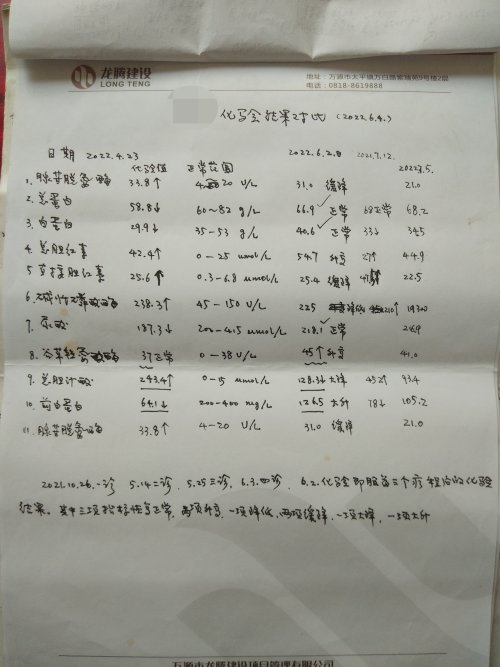 龙腾建设
LONG TENG
地址：万源市太平镇万白路索瑞苑9号楼2层
电话：0818-8619888
化验结果对比（2022.6.4.）
日期 2022.4.23 化验值 正常范围 2022.6.2日 2021.7.12.
1. 腺苷脱氨酶 33.8↑ 4 20 U/L 31.0 缓降 21.0
2. 总蛋白 58.8↓ 60～82 g/L 66.9 正常 68正常 68.2
3. 白蛋白 29.9↓ 35－53 g/L 40.6 正常 33↓ 34.5
4. 总胆红素 42.4↑ 0－25 umol/L 54.7 升高 27↑ 44.9
5 直接胆红素 25.6↑ 0.3-6.8 umol/L 25.4 缓降 22.5
6. 碱性磷酸酶 238.3↑ 45－150 U/L 225 降低 210↑
7. 尿酸 187.3↓ 200-415 umol/L 218.1 正常
8. 谷草转氨酶 37正常 0－38 U/L 45↑升高 41.0
9. 总胆汁酸 243.4↑ 0－15 umol/L 128.3↓ 大降 452↑ 93.4
10. 前白蛋白 64.1↓ 200-400 mg/L 126.5 大升 78↓ 105.2
11. 腺苷脱氨酶 33.8↑ 4－20 U/L 31.0 缓降 21.0
2021.10.26.一诊 5.14二诊、5.25三诊、6.3.四诊、6.2.化验即服第三个疗程后的化验
结果。其中三项指标恢复正常，两项升高，一项降低，两项缓降，一项大降，一项大升
万源市龙腾建设项目管理有限公司